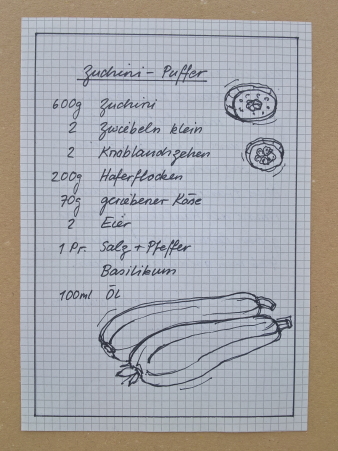 Zuchini - Puffer
600g Zuchini
2 Zwiebeln klein
2 Knoblauchzehen
200g Haferflocken
70g geriebener Käse
2 Eier
1 Pr. Salz + Pfeffer
Basilikum
100ml Öl